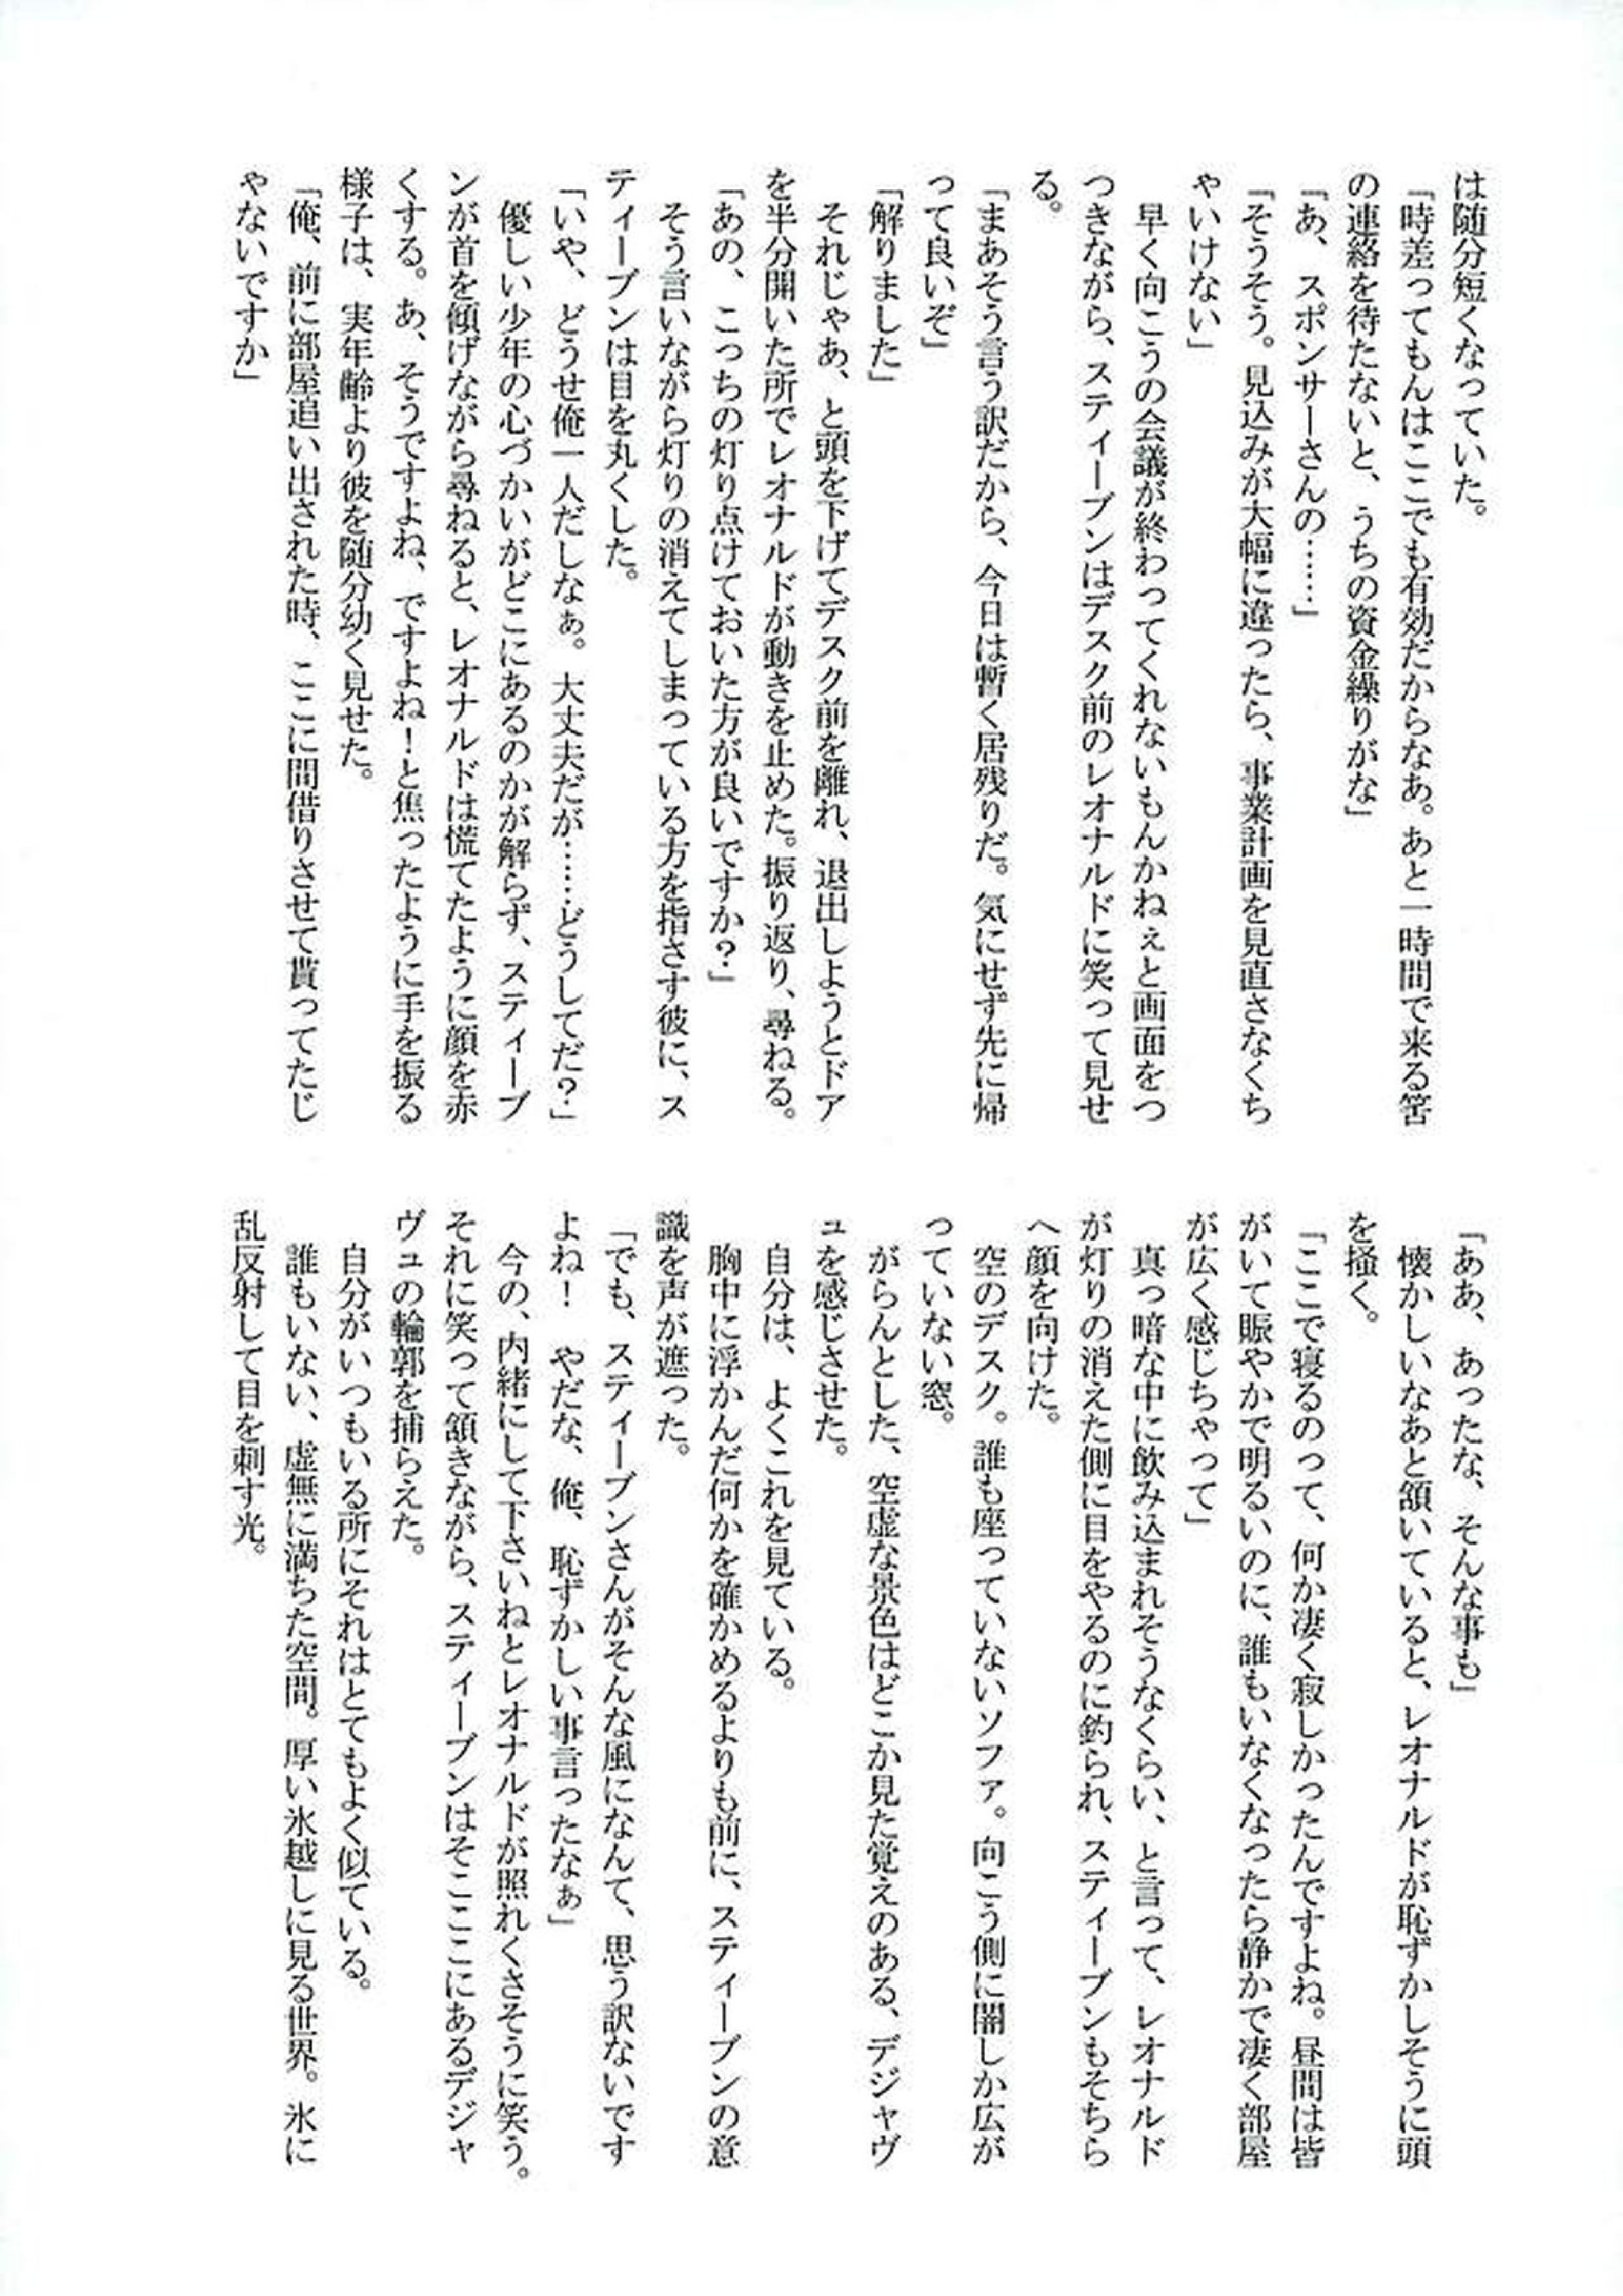 は随分短くなっていた。
「時差ってもんはここでも有効だからなあ。あと一時間で来る筈
の連絡を待たないと、うちの資金繰りがな」
「あ、スポンサーさんの……」
「そうそう。見込みが大幅に違ったら、事業計画を見直さなくち
ゃいけない」
早く向こうの会議が終わってくれないもんかねぇと画面をつ
つきながら、スティーブンはデスク前のレオナルドに笑って見せ
る。
「まあそう言う訳だから、今日は暫く居残りだ。気にせず先に帰
って良いぞ」
「解りました」
それじゃあ、と頭を下げてデスク前を離れ、退出しようとドア
を半分開いた所でレオナルドが動きを止めた。振り返り、尋ねる。
「あの、こっちの灯り点けておいた方が良いですか？」
そう言いながら灯りの消えてしまっている方を指さす彼に、ス
ティーブンは目を丸くした。
「いや、どうせ俺一人だしなぁ。大丈夫だが……どうしてだ？」
優しい少年の心づかいがどこにあるのかが解らず、スティーブ
ンが首を傾げながら尋ねると、レオナルドは慌てたように顔を赤
くする。あ、そうですよね、ですよね！と焦ったように手を振る
様子は、実年齢より彼を随分幼く見せた。
「俺、前に部屋追い出された時、ここに間借りさせて貰ってたじ
ゃないですか」
「ああ、あったな、そんな事も」
懐かしいなあと頷いていると、レオナルドが恥ずかしそうに頭
を掻く。
「ここで寝るのって、何か凄く寂しかったんですよね。昼間は皆
がいて賑やかで明るいのに、誰もいなくなったら静かで凄く部屋
が広く感じちゃって」
真っ暗な中に飲み込まれそうなくらい、と言って、レオナルド
が灯りの消えた側に目をやるのに釣られ、スティーブンもそちら
へ顔を向けた。
空のデスク。誰も座っていないソファ。向こう側に闇しか広が
っていない窓。
がらんとした、空虚な景色はどこか見た覚えのある、デジャヴ
ュを感じさせた。
自分は、よくこれを見ている。
胸中に浮かんだ何かを確かめるよりも前に、スティーブンの意
識を声が遮った。
「でも、スティーブンさんがそんな風になんて、思う訳ないです
よね！　やだな、俺、恥ずかしい事言ったなぁ」
今の、内緒にして下さいねとレオナルドが照れくさそうに笑う。
それに笑って頷きながら、スティーブンはそこここにあるデジャ
ヴュの輪郭を捕らえた。
自分がいつもいる所にそれはとてもよく似ている。
誰もいない、虚無に満ちた空間。厚い氷越しに見る世界。氷に
乱反射して目を刺す光。